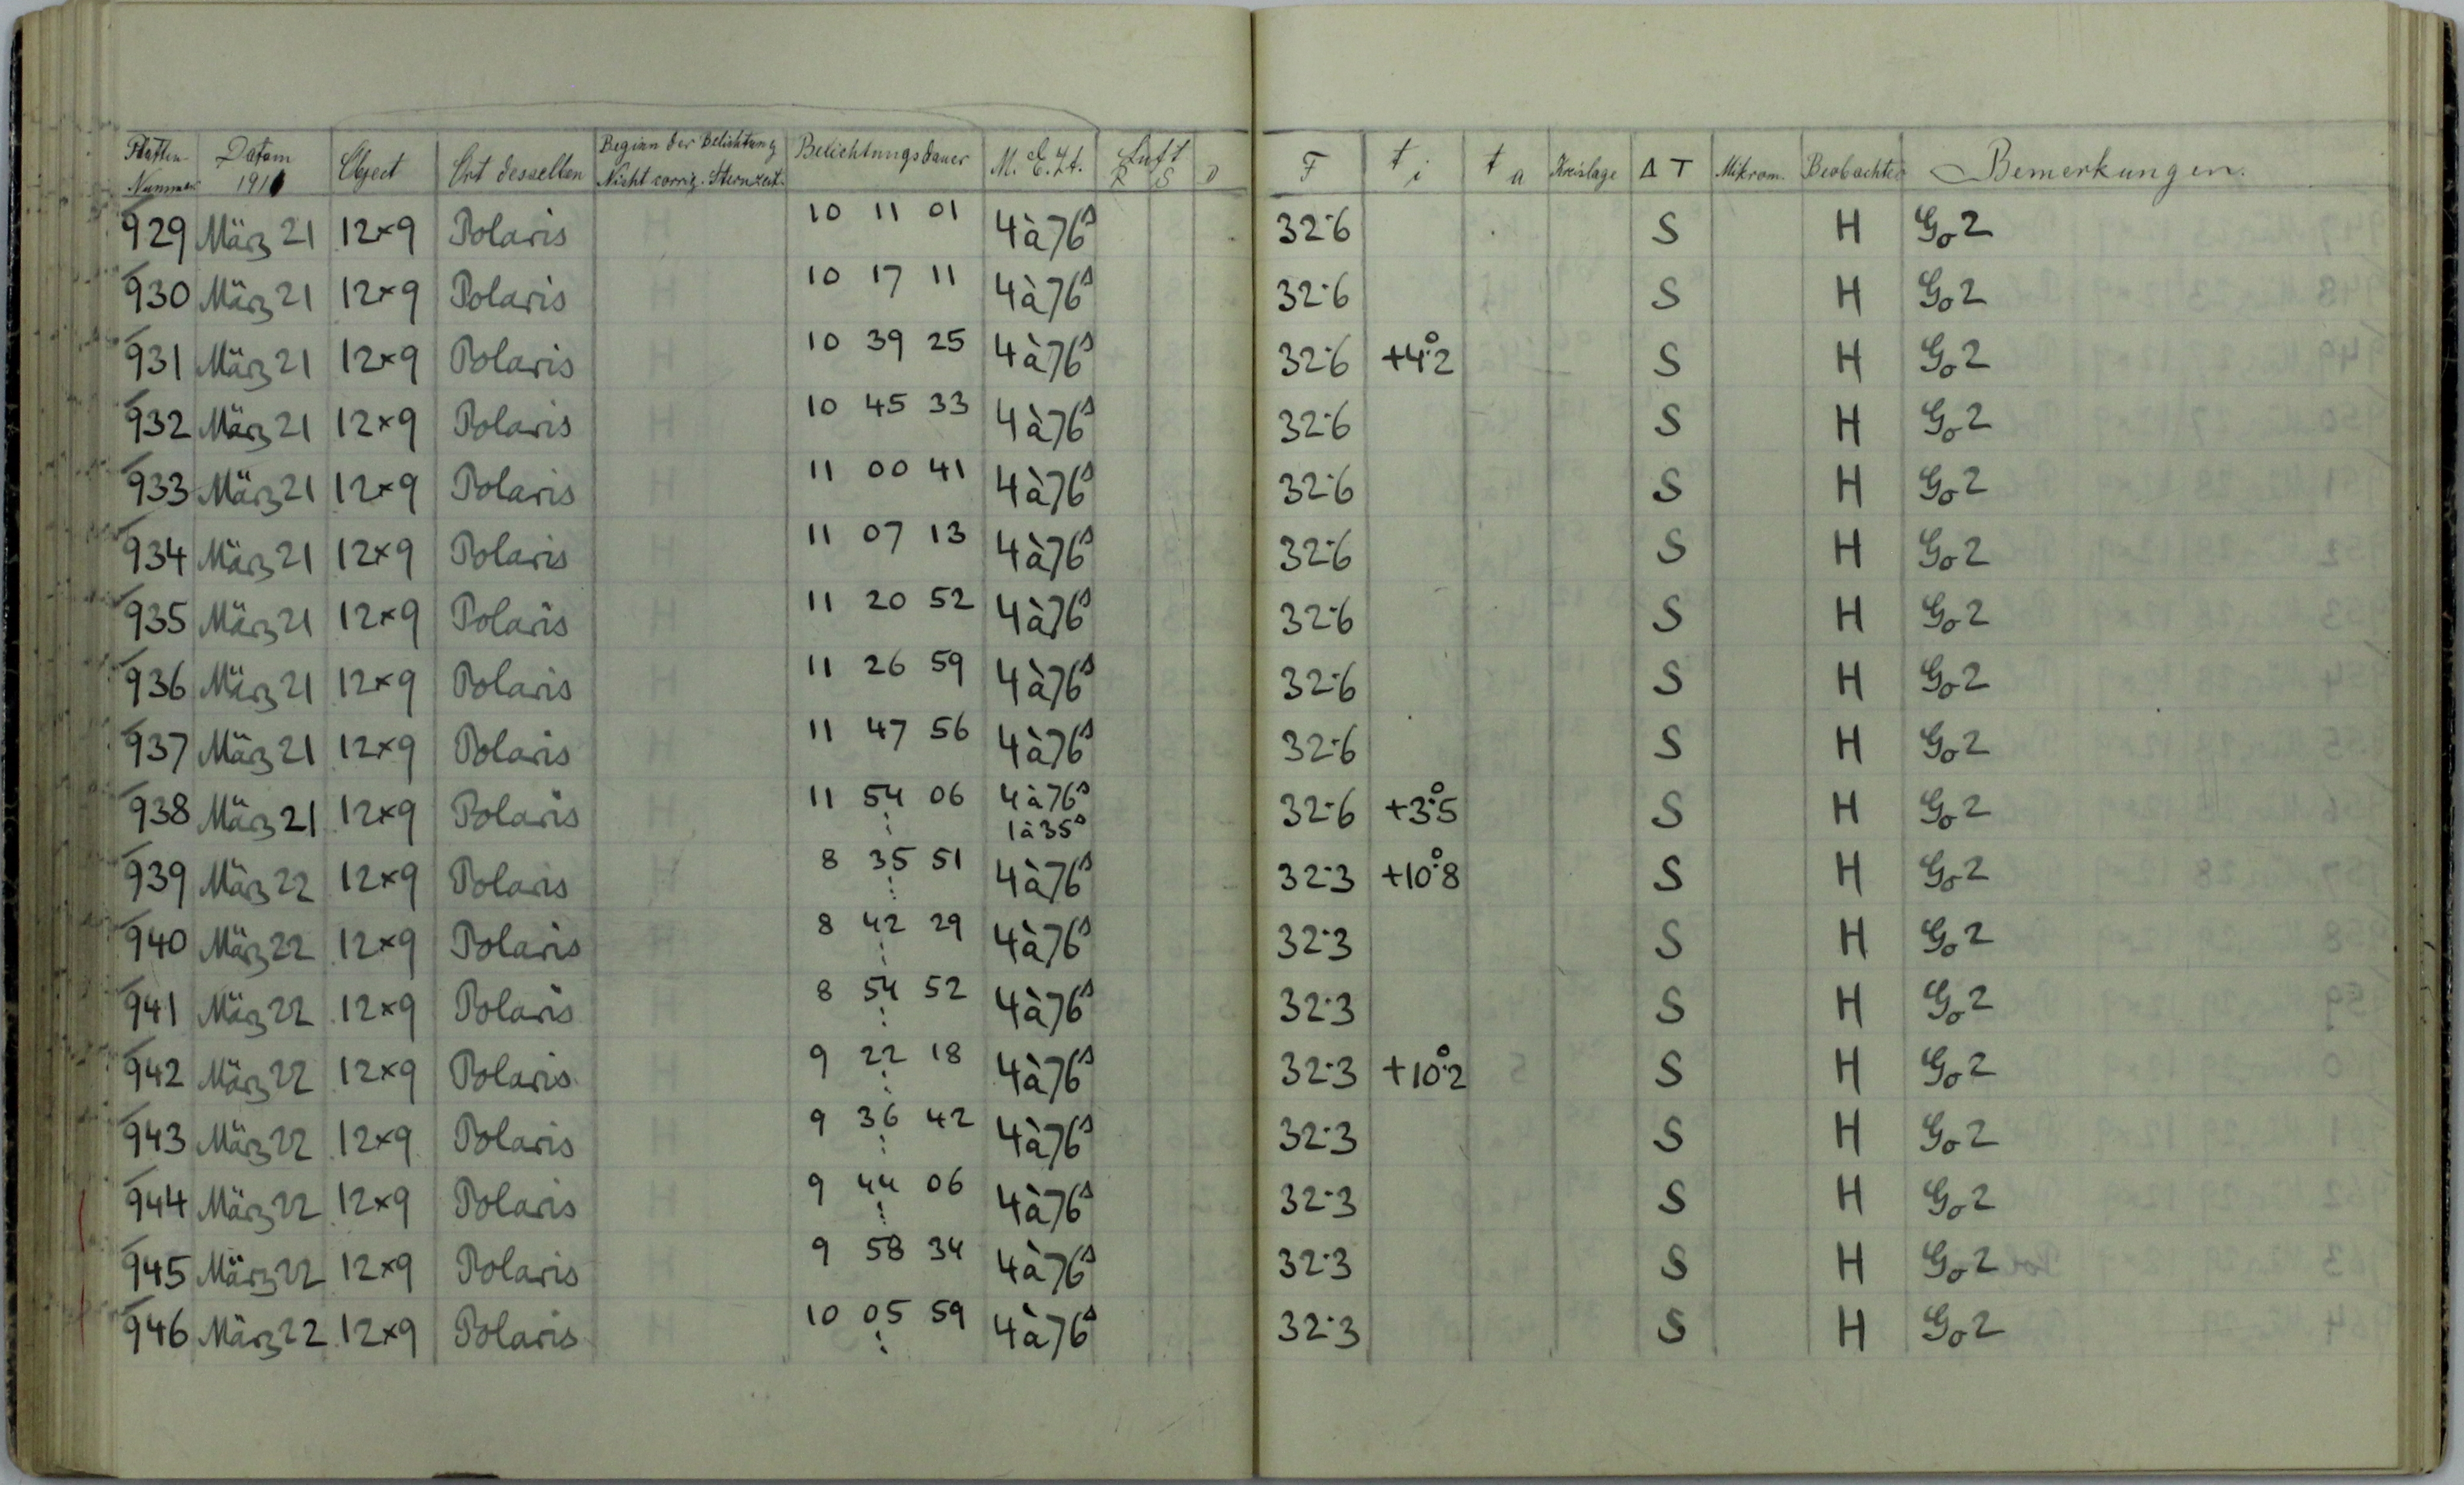 Platten Nummer Datum 1911 Object Ort desselben Beginn der Belichtung Nicht corrig. Sternzeit. Belichtungsdauer M. E. Zt. Luft R S D F t i t a Kreislage Δ T Mikrom. Beobachter Bemerkungen.
929 März 21 12×9 Polaris 10 11 01 4à76s 32·6 S H Go2
930 März 21 12×9 Polaris 10 17 11 4à76s 32·6 S H Go2
931 März 21 12×9 Polaris 10 39 25 4à76s 32·6 +4°.2 S H Go2
932 März 21 12×9 Polaris 10 45 33 4à76s 32·6 S H Go2
933 März 21 12×9 Polaris 11 00 41 4à76s 32·6 S H Go2
934 März 21 12×9 Polaris 11 07 13 4à76s 32·6 S H Go2
935 März 21 12×9 Polaris 11 20 52 4à76s 32·6 S H Go2
936 März 21 12×9 Polaris 11 26 59 4à76s 32·6 S H Go2
937 März 21 12×9 Polaris 11 47 56 4à76s 32·6 S H Go2
938 März 21 12×9 Polaris 11 54 06 4à76s 32·6 +3°.5 S H Go2
1à35s
939 März 22 12×9 Polaris 8 35 51 4à76s 32·3 +10°.8 S H Go2
940 März 22 12×9 Polaris 8 42 29 4à76s 32·3 S H Go2
941 März 22 12×9 Polaris 8 54 52 4à76s 32·3 S H Go2
942 März 22 12×9 Polaris 9 22 18 4à76s 32·3 +10°.2 S H Go2
943 März 22 12×9 Polaris 9 36 42 4à76s 32·3 S H Go2
944 März 22 12×9 Polaris 9 44 06 4à76s 32·3 S H Go2
945 März 22 12×9 Polaris 9 58 34 4à76s 32·3 S H Go2
946 März 22 12×9 Polaris 10 05 59 4à76s 32·3 S H Go2